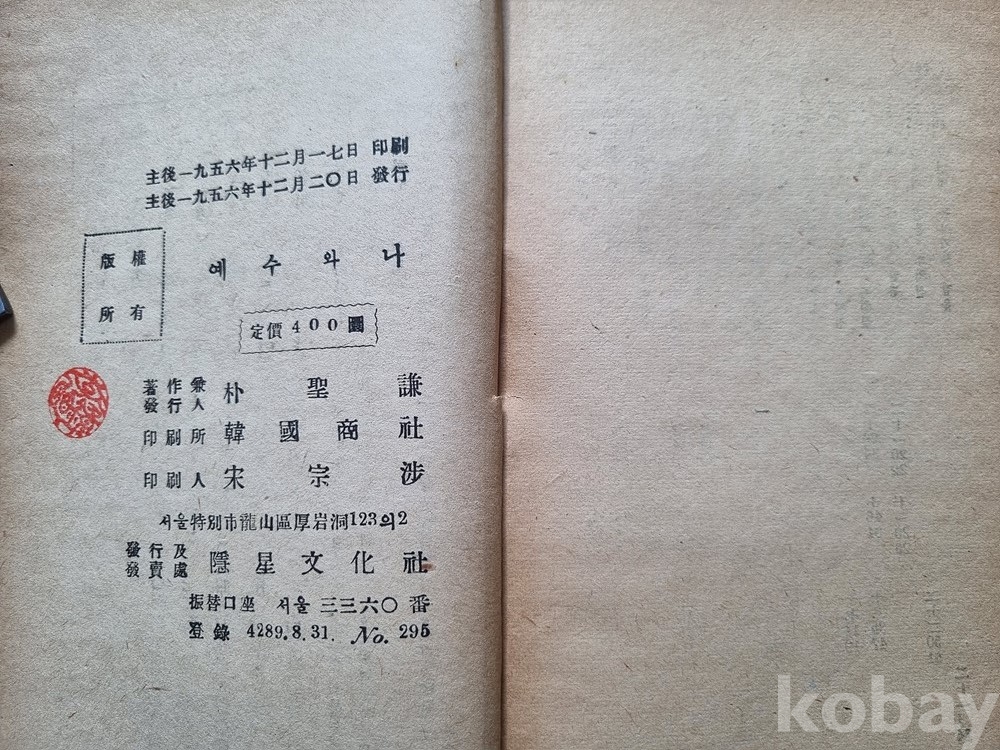 主後一九五六年十二月一七日 印刷
主後一九五六年十二月二〇日 發行
版權
所有
예수와 나
定價 400圜
著作兼
發行人 朴聖謙
印刷所 韓國商社
印刷人 宋宗涉
서울特別市龍山區厚岩洞123의2
發行及
發賣處 隱星文化社
振替口座 서울 三三六〇番
登錄 4289.8.31. No. 295
kobay